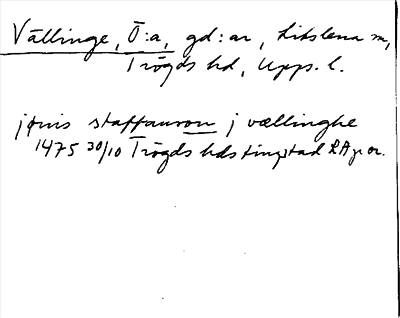 Vällinge, Ö:a, gd:ar, Litslena sn,
Trögds hd, Upps. l.
jønis staffansson j vællinghe
1475 30/10 Trögds hds tingstad RAp or.